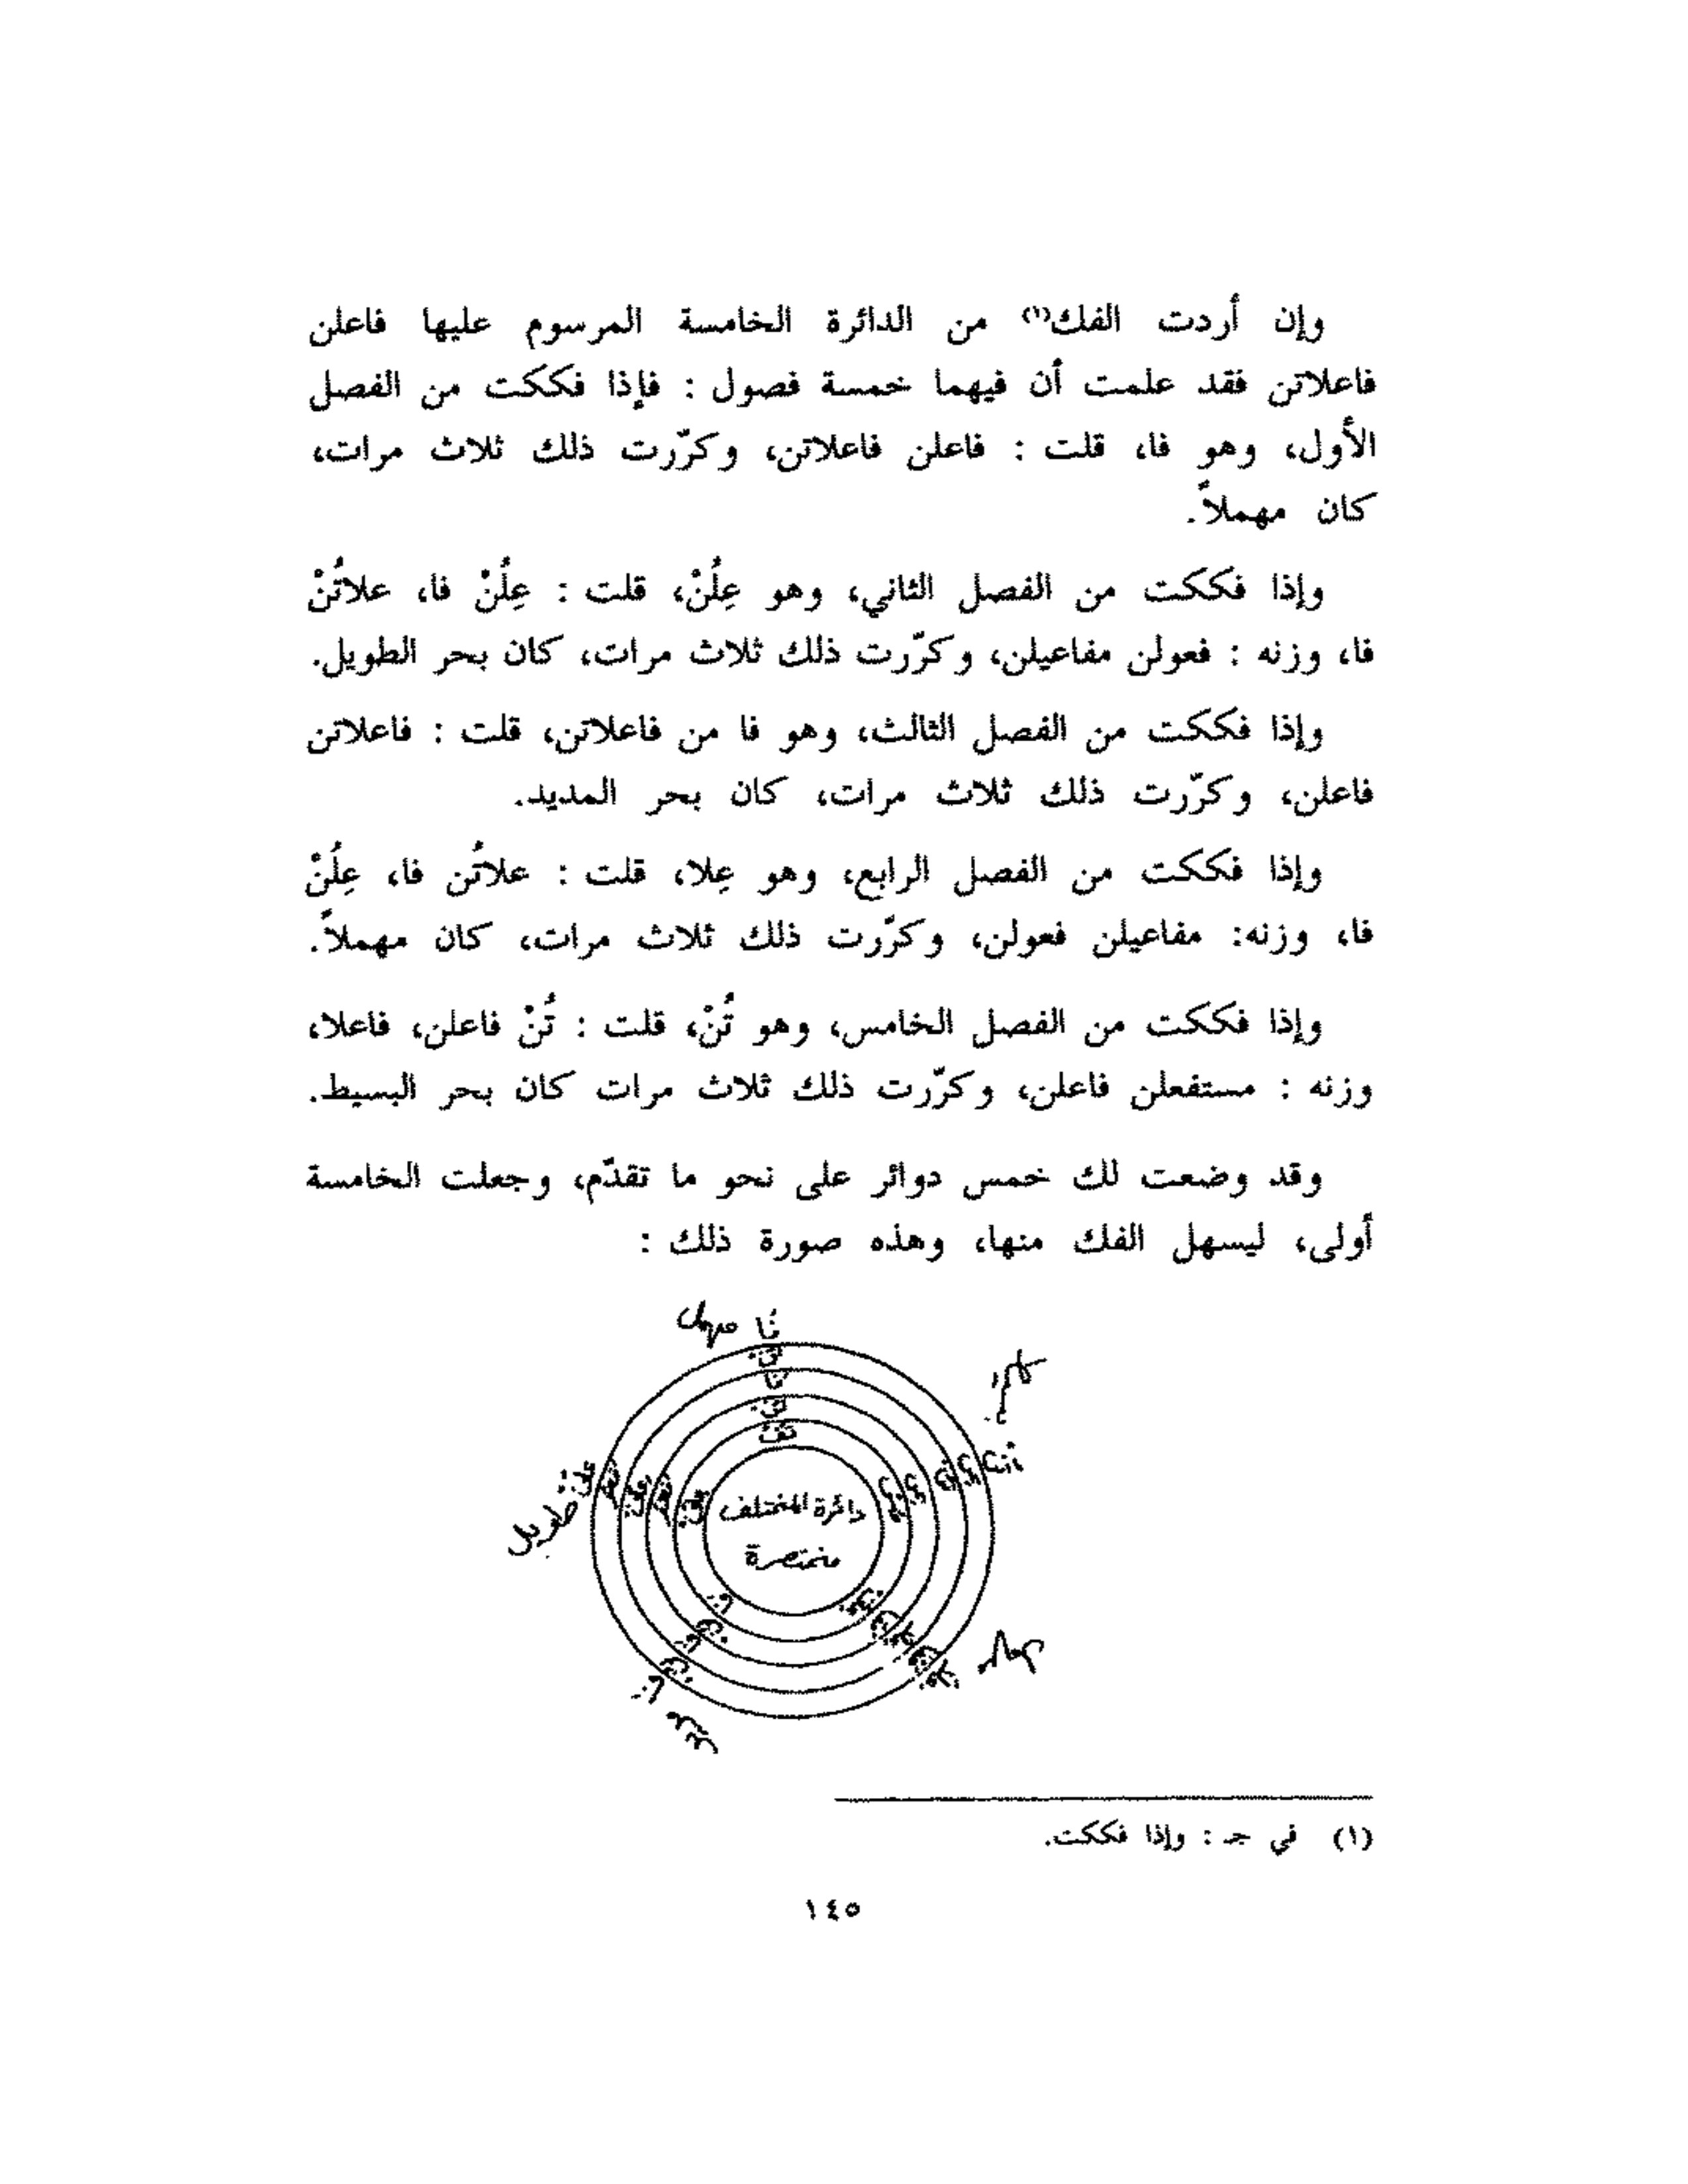 وإن أردت الفك(١) من الدائرة الخامسة المرسوم عليها فاعلن
فاعلاتن فقد علمت أن فيهما خمسة فصول : فإذا فككت من الفصل
الأول، وهو فا، قلت : فاعلن فاعلاتن، وكرّرت ذلك ثلاث مرات،
كان مهملاً.
وإذا فككت من الفصل الثاني، وهو عِلُنْ، قلت : عِلُنْ فا، علاتُنْ
فا، وزنه : فعولن مفاعيلن، وكرّرت ذلك ثلاث مرات، كان بحر الطويل.
وإذا فككت من الفصل الثالث، وهو فا من فاعلاتن، قلت : فاعلاتن
فاعلن، وكرّرت ذلك ثلاث مرات، كان بحر المديد.
وإذا فككت من الفصل الرابع، وهو عِلا، قلت : علاتُن فا، عِلُنْ
فا، وزنه: مفاعيلن فعولن، وكرّرت ذلك ثلاث مرات، كان مهملاً.
وإذا فككت من الفصل الخامس، وهو تُنْ، قلت : تُنْ فاعلن، فاعلا،
وزنه : مستفعلن فاعلن، وكرّرت ذلك ثلاث مرات كان بحر البسيط.
وقد وضعت لك خمس دوائر على نحو ما تقدّم، وجعلت الخامسة
أولى، ليسهل الفك منها، وهذه صورة ذلك :
فا مهمل
طويل
دائرة المختلف
مختصرة
(١) في جـ : وإذا فككت.
١٤٥